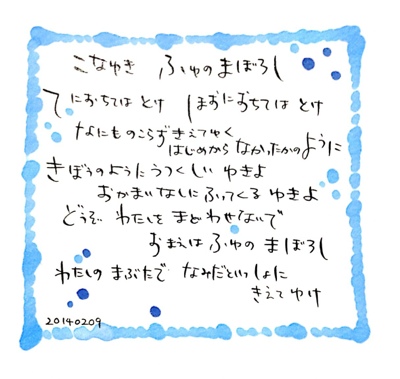 こなゆき　ふゆのまぼろし
てにおちてはとけ　ほおにおちてはとけ
なにものこらずきえてゆく
はじめからなかったかのように
きぼうのようにうつくしいゆきよ
おかまいなしにふってくるゆきよ
どうぞ　わたしをまどわせないで
おまえはふゆのまぼろし
わたしのまぶたで　なみだといっしょに
きえてゆけ
20140209